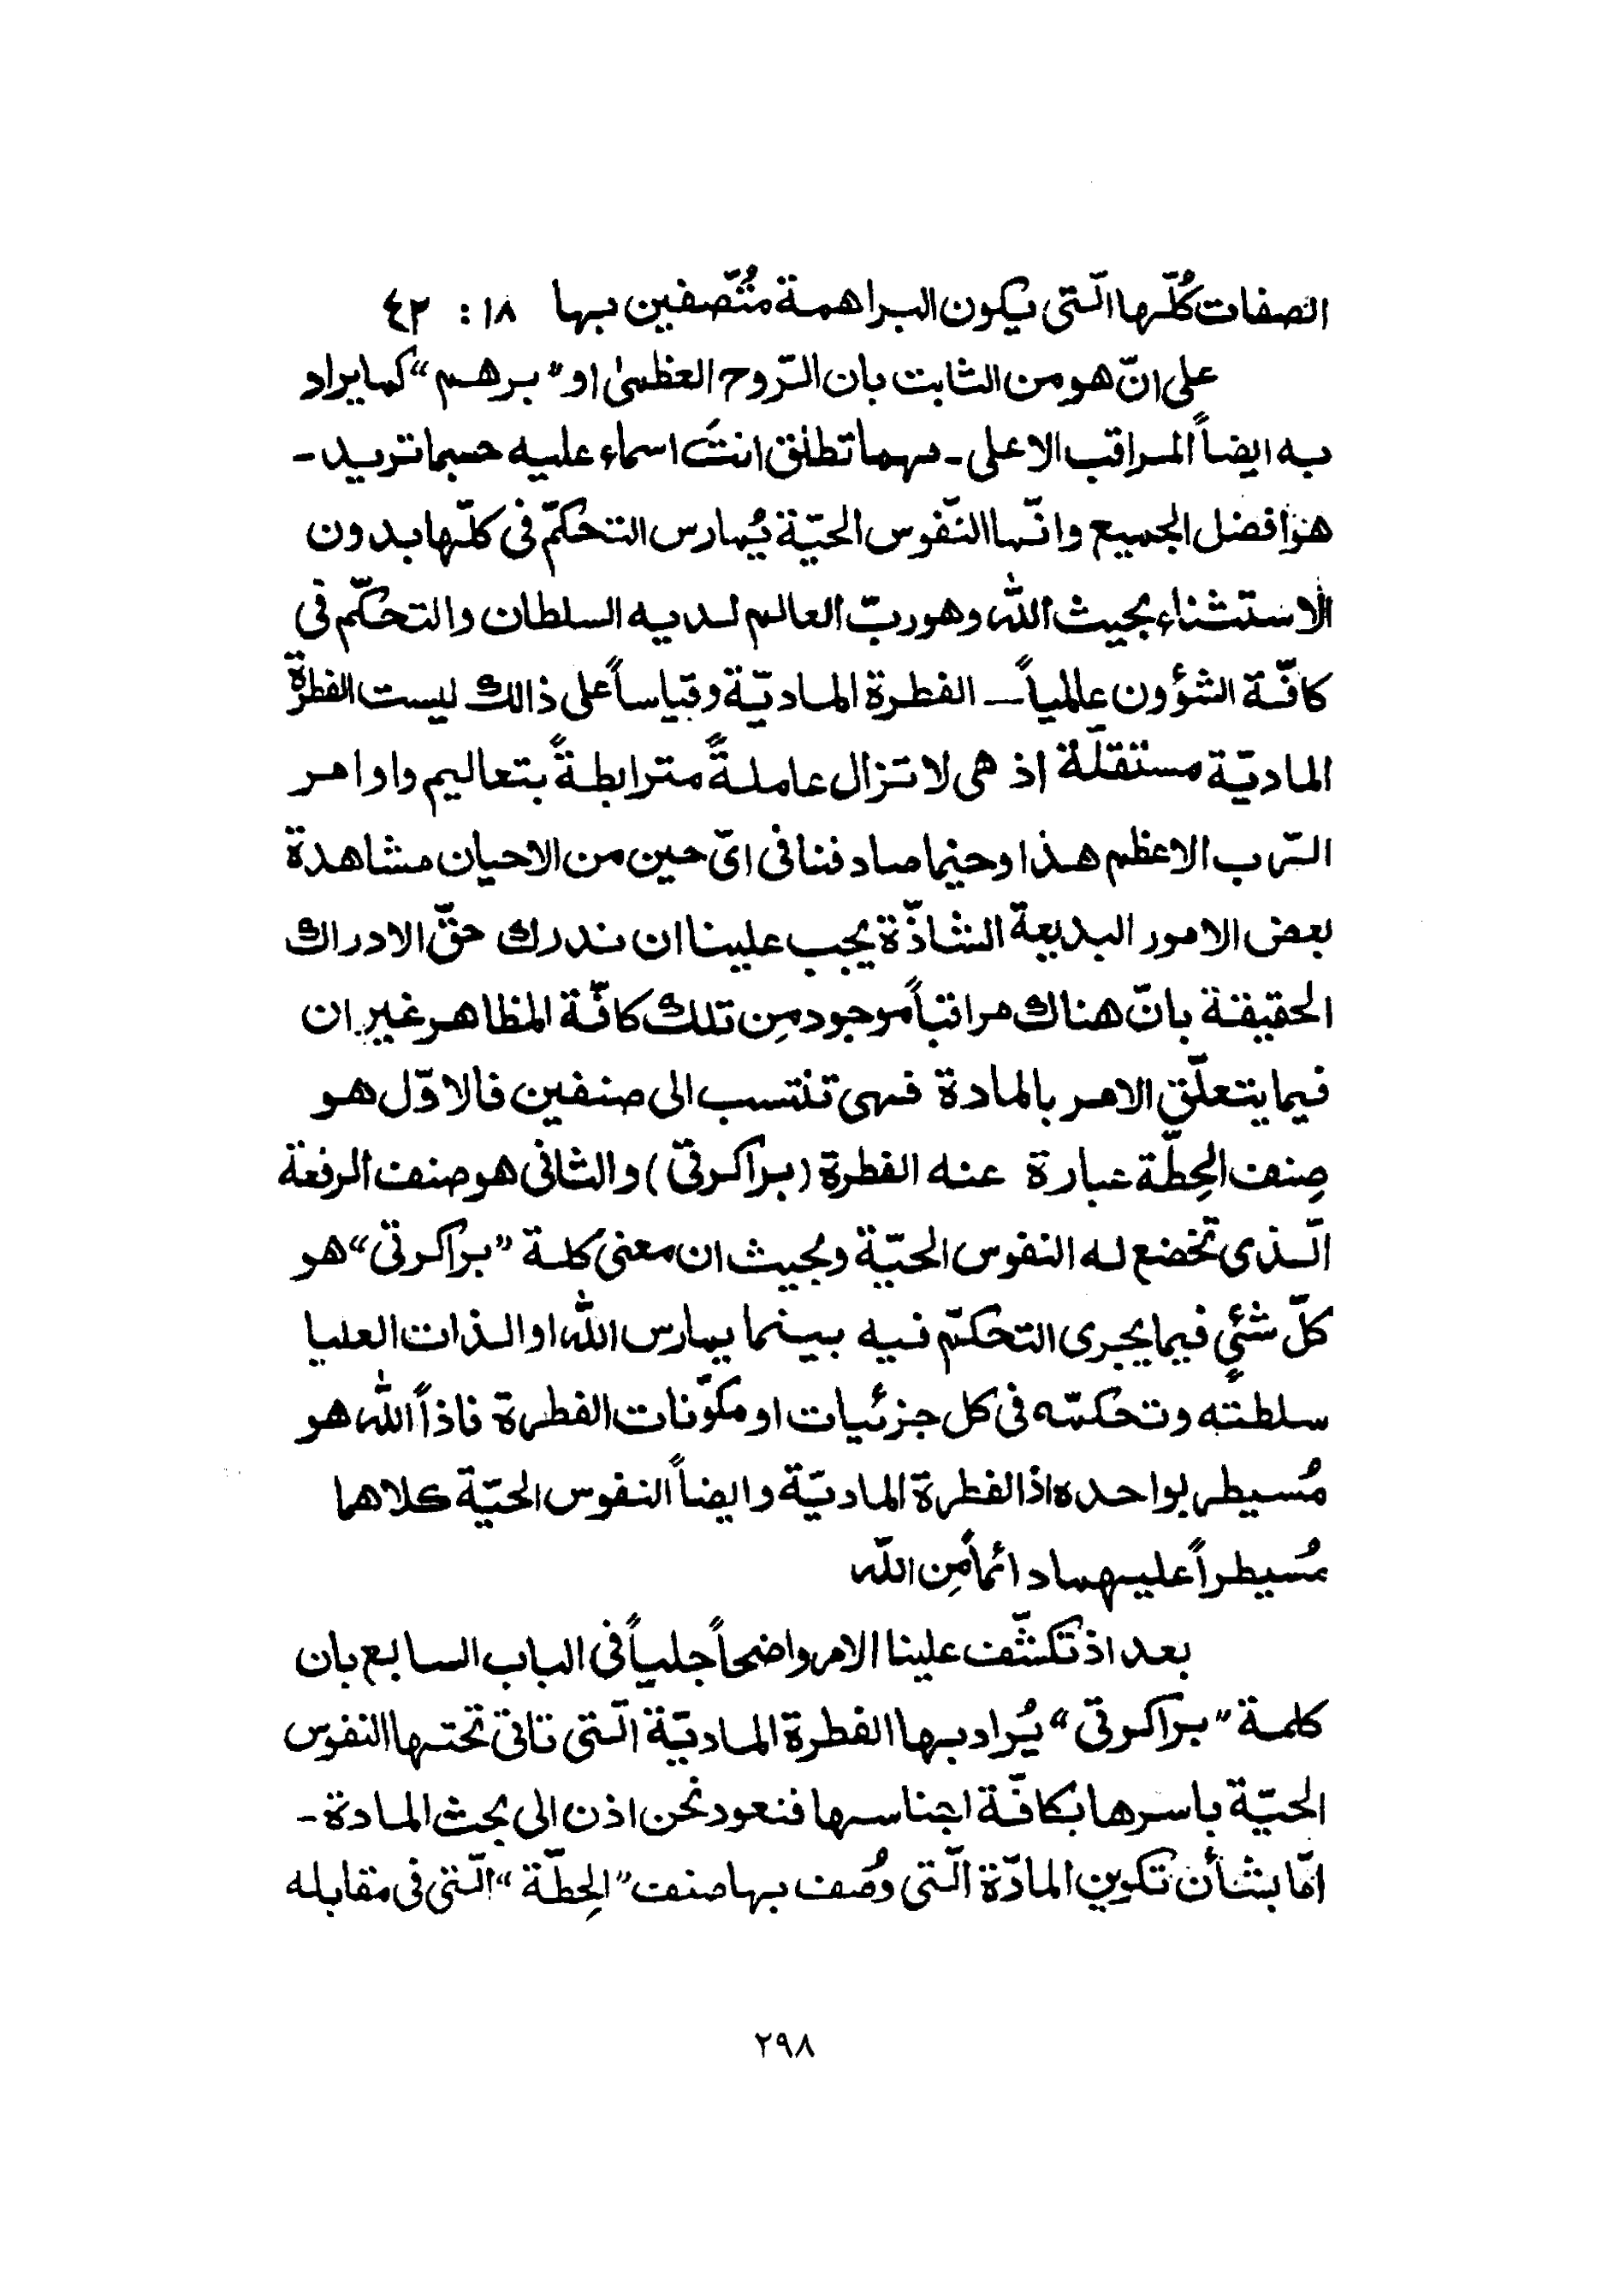 الصفات كُلّها الّتى يكون البراهمة متُّصفين بها ١٨ : ٤٢
على انّ هو من الثابت بان الرّوح العظمىٰ او "برهم" كما يراد
به ايضاً المراقب الاعلى - مهما تطلق انتَ اسماء عليه حسبما تريد -
هو افضل الجميع وانّها النّفوس الحيّة يُمارس التحكّم فى كلّها بدون
الاستثناء بحيث الله وهو ربّ العالم لديه السلطان والتحكّم فى
كافّة الشؤون عالمياً — الفطرة الماديّة وقياساً على ذالك ليست الفطرة
الماديّة مستقلّة اذ هى لا تزال عاملةً مترابطةً بتعاليم واوامر
الرّب الاعظم هذا وحينما صادفنا فى اىّ حين من الاحيان مشاهدة
بعض الامور البديعة الشاذّة يجب علينا ان ندرك حقّ الادراك
الحقيقة بانّ هناك مراقباً موجود مِن تلك كافّة المظاهر غير ان
فيما يتعلّق الامر بالمادة فهى تنتسب الى صنفين فالاوّل هو
صِنف الحِطّة عبارة عنه الفطرة (براكرتى) والثانى هو صنف الرفعة
الّذى تخضع له النفوس الحيّة وبحيث ان معنى كلمة "براكرتى" هو
كلّ شئي فيما يجرى التحكّم فيه بينما يمارس الله او الذات العليا
سلطته وتحكمّه فى كل جزئيات او مكوّنات الفطرة فاذاً الله هو
مُسيطر لواحده اذا الفطرة الماديّة وايضاً النفوس الحيّة كلاهما
مُسيطراً عليهما دائماً مِن الله
بعد اذ تكشّف علينا الامر واضحاً جلياً فى الباب السابع بان
كلمة "براكرتى" يُراد بها الفطرة الماديّة الّتى تاتى تحتها النفوس
الحيّة باسرها بكافّة اجناسها فنعود نحن اذن الى بحث المادة -
امّا بشأن تكوين المادّة الّتى وُصف بها صنف "الحِطّة" الّتى فى مقابله
٢٩٨